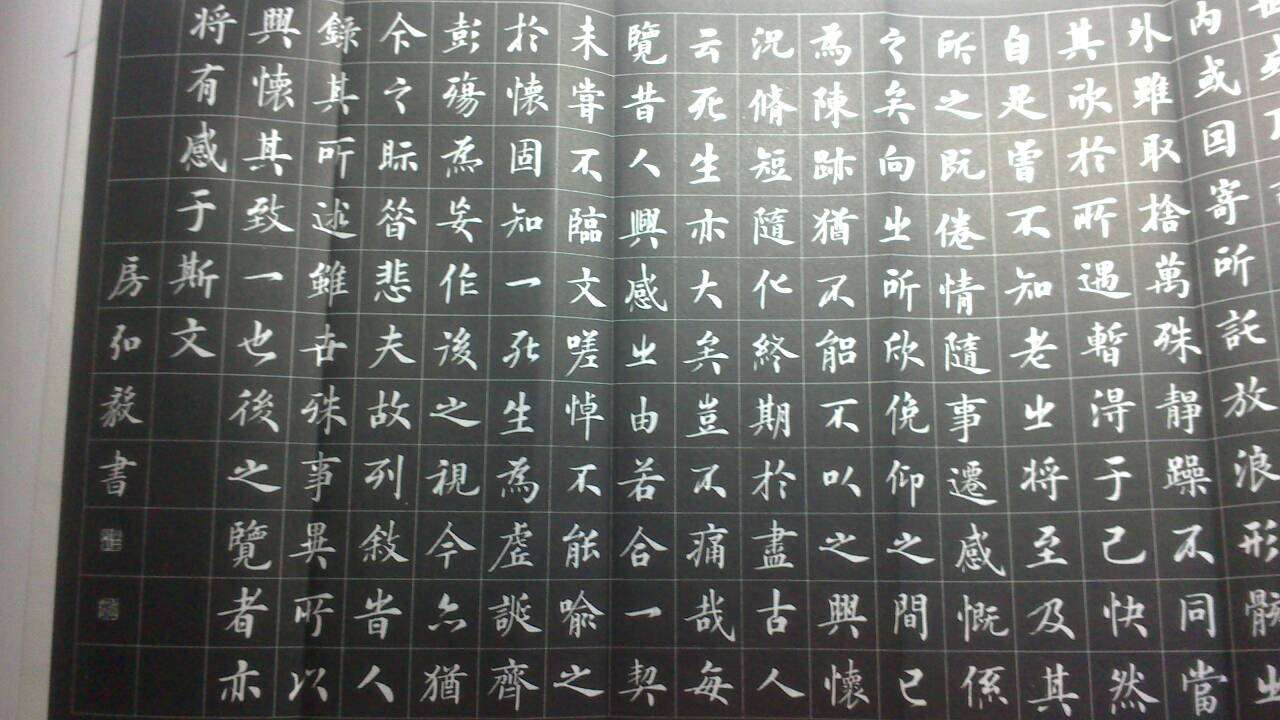 内或因寄所託放浪形骸之
外雖取捨萬殊靜躁不同當
其欣於所遇暫得于己快然
自足曾不知老之将至及其
所之既倦情隨事遷感慨係
之矣向之所欣俛仰之間已
為陳跡猶不能不以之興懷
況脩短隨化終期於盡古人
云死生亦大矣豈不痛哉每
覽昔人興感之由若合一契
未嘗不臨文嗟悼不能喻之
於懷固知一死生為虛誕齊
彭殤為妄作後之視今亦猶
今之眎昔悲夫故列敘昔人
錄其所述雖世殊事異所以
興懷其致一也後之覽者亦
将有感于斯文
房弘毅書